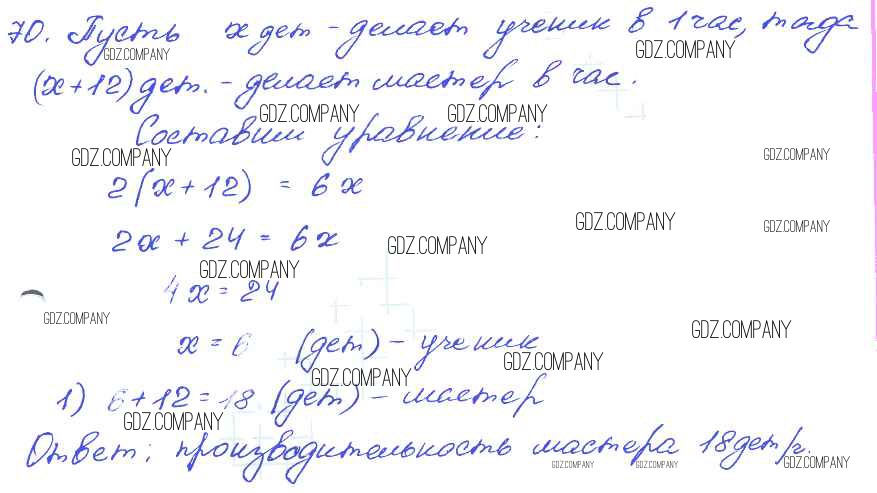 70. Пусть x дет - делает ученик в 1 час, тогда
GDZ.COMPANY GDZ.COMPANY
(x+12) дет. - делает мастер в час.
GDZ.COMPANY GDZ.COMPANY
Составим уравнение:
GDZ.COMPANY GDZ.COMPANY
2(x+12) = 6x
GDZ.COMPANY GDZ.COMPANY
2x + 24 = 6x GDZ.COMPANY
GDZ.COMPANY
4x = 24
GDZ.COMPANY GDZ.COMPANY
x = 6 (дет) - ученик
GDZ.COMPANY
GDZ.COMPANY
1) 6+12=18 (дет) - мастер
GDZ.COMPANY
Ответ: производительность мастера 18дет/ч.
GDZ.COMPANY GDZ.COMPANY GDZ.COMPANY